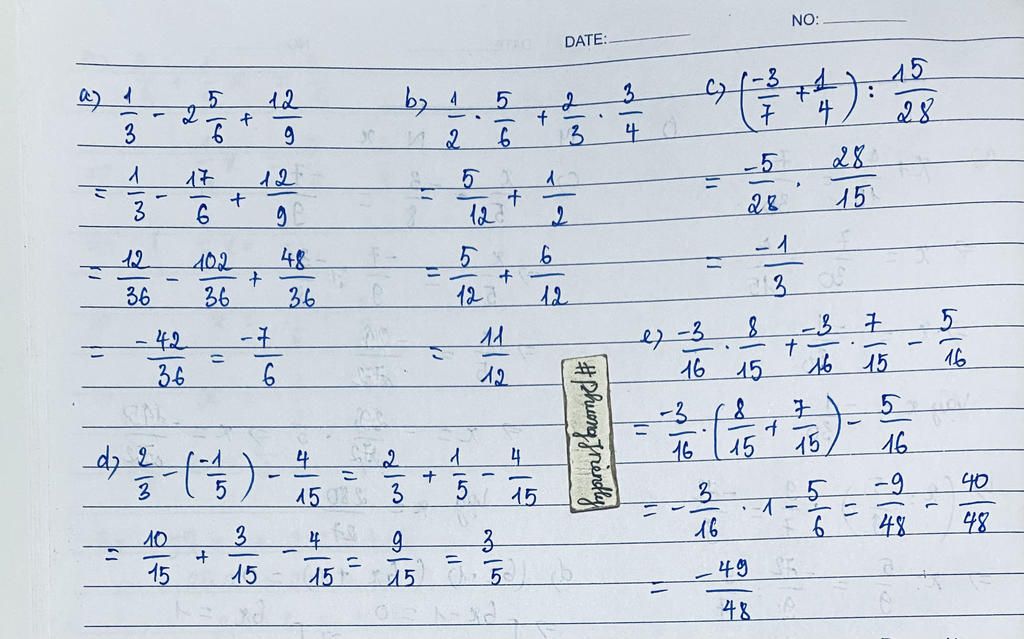 NO:
DATE:
a) 1/3 - 2 5/6 + 12/9
= 1/3 - 17/6 + 12/9
= 12/36 - 102/36 + 48/36
= -42/36 = -7/6
b) 1/2 . 5/6 + 2/3 . 3/4
= 5/12 + 1/2
= 5/12 + 6/12
= 11/12
c) (-3/7 + 1/4) : 15/28
= -5/28 . 28/15
= -1/3
d) 2/3 - (-1/5) - 4/15 = 2/3 + 1/5 - 4/15
= 10/15 + 3/15 - 4/15 = 9/15 = 3/5
e) -3/16 . 8/15 + -3/16 . 7/15 - 5/16
= -3/16 . (8/15 + 7/15) - 5/16
= - 3/16 . 1 - 5/6 = -9/48 - 40/48
= -49/48